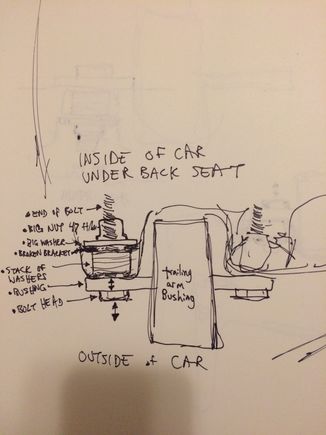 INSIDE OF CAR
UNDER BACK SEAT
• END OF BOLT
• BIG NUT
• BIG WASHER
• BROKEN BRACKET
• STACK OF
WASHERS
• BUSHING
• BOLT HEAD
trailing
arm
Bushing
OUTSIDE of CAR